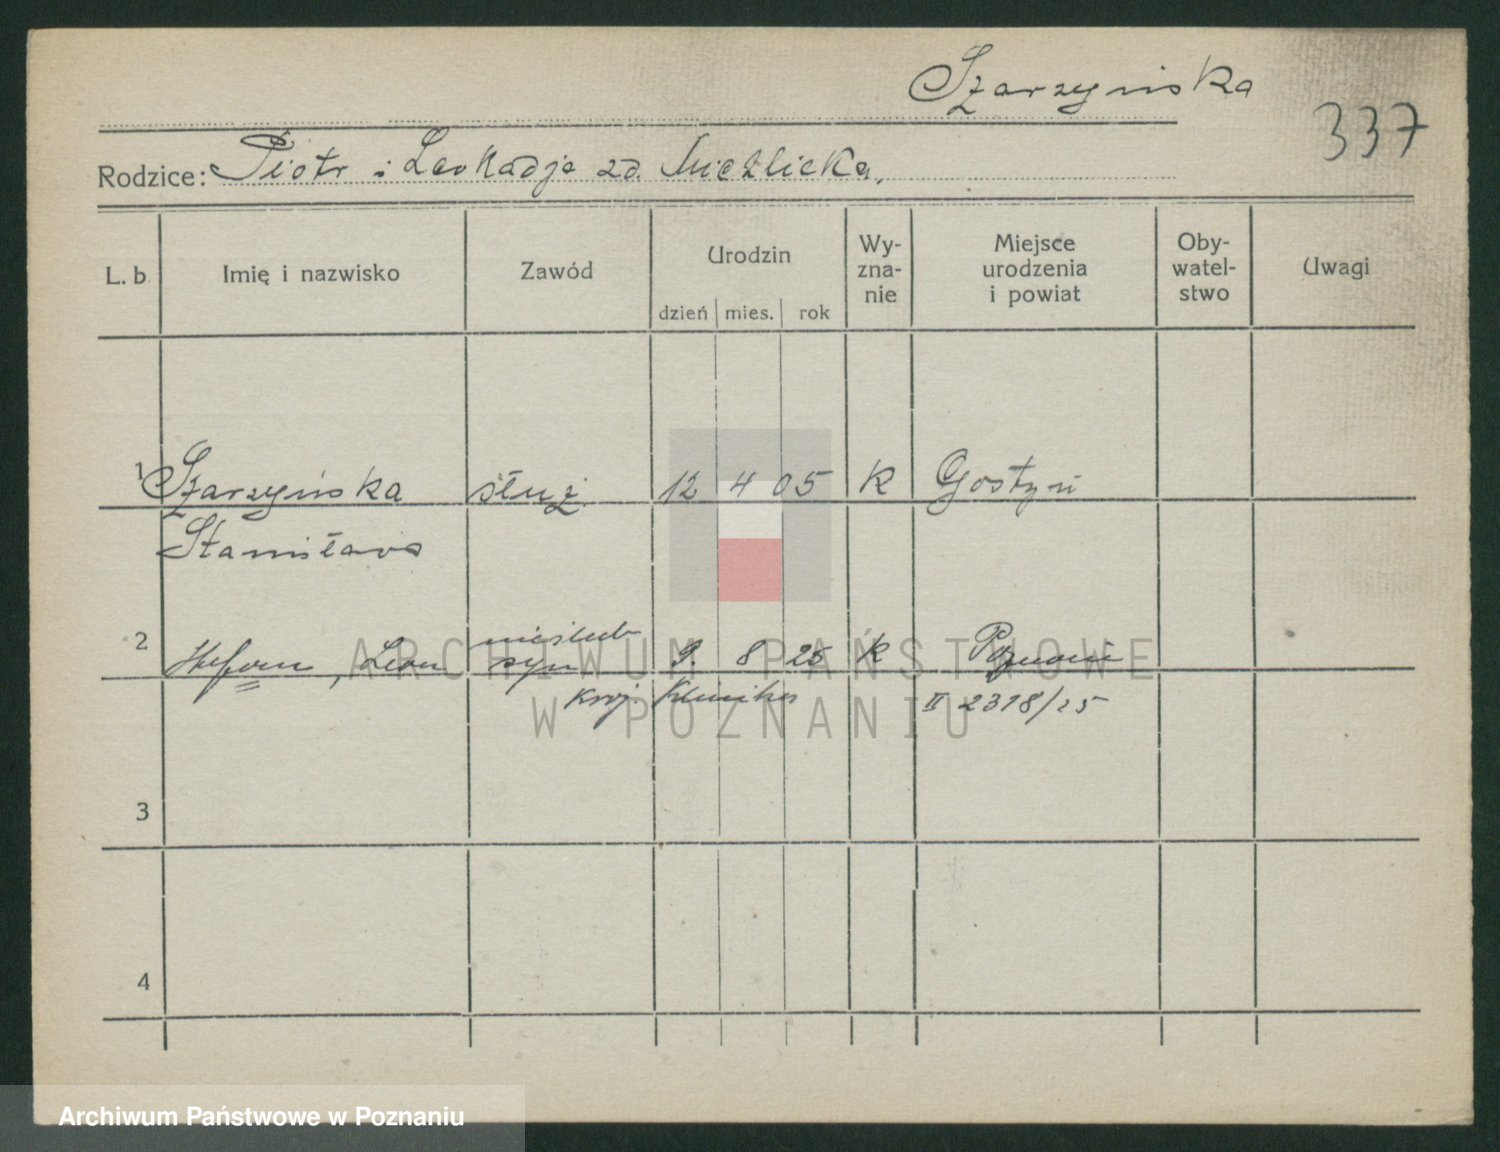 Szarzyńska
337
Rodzice: Piotr i Leokadja zd.
L. b. Imię i nazwisko Zawód Urodzin dzień mies. rok Wy-zna-nie Miejsce urodzenia i powiat Oby-watel-stwo Uwagi
1 Szarzyńska służ. 12 4 05 K Gostyń
Stanisława
2 Stefan, Leon nieślub. syn 9. 8 25 K Poznań
II 2318/25
3
4
ARCHIWUM PAŃSTWOWE
W POZNANIU
Archiwum Państwowe w Poznaniu